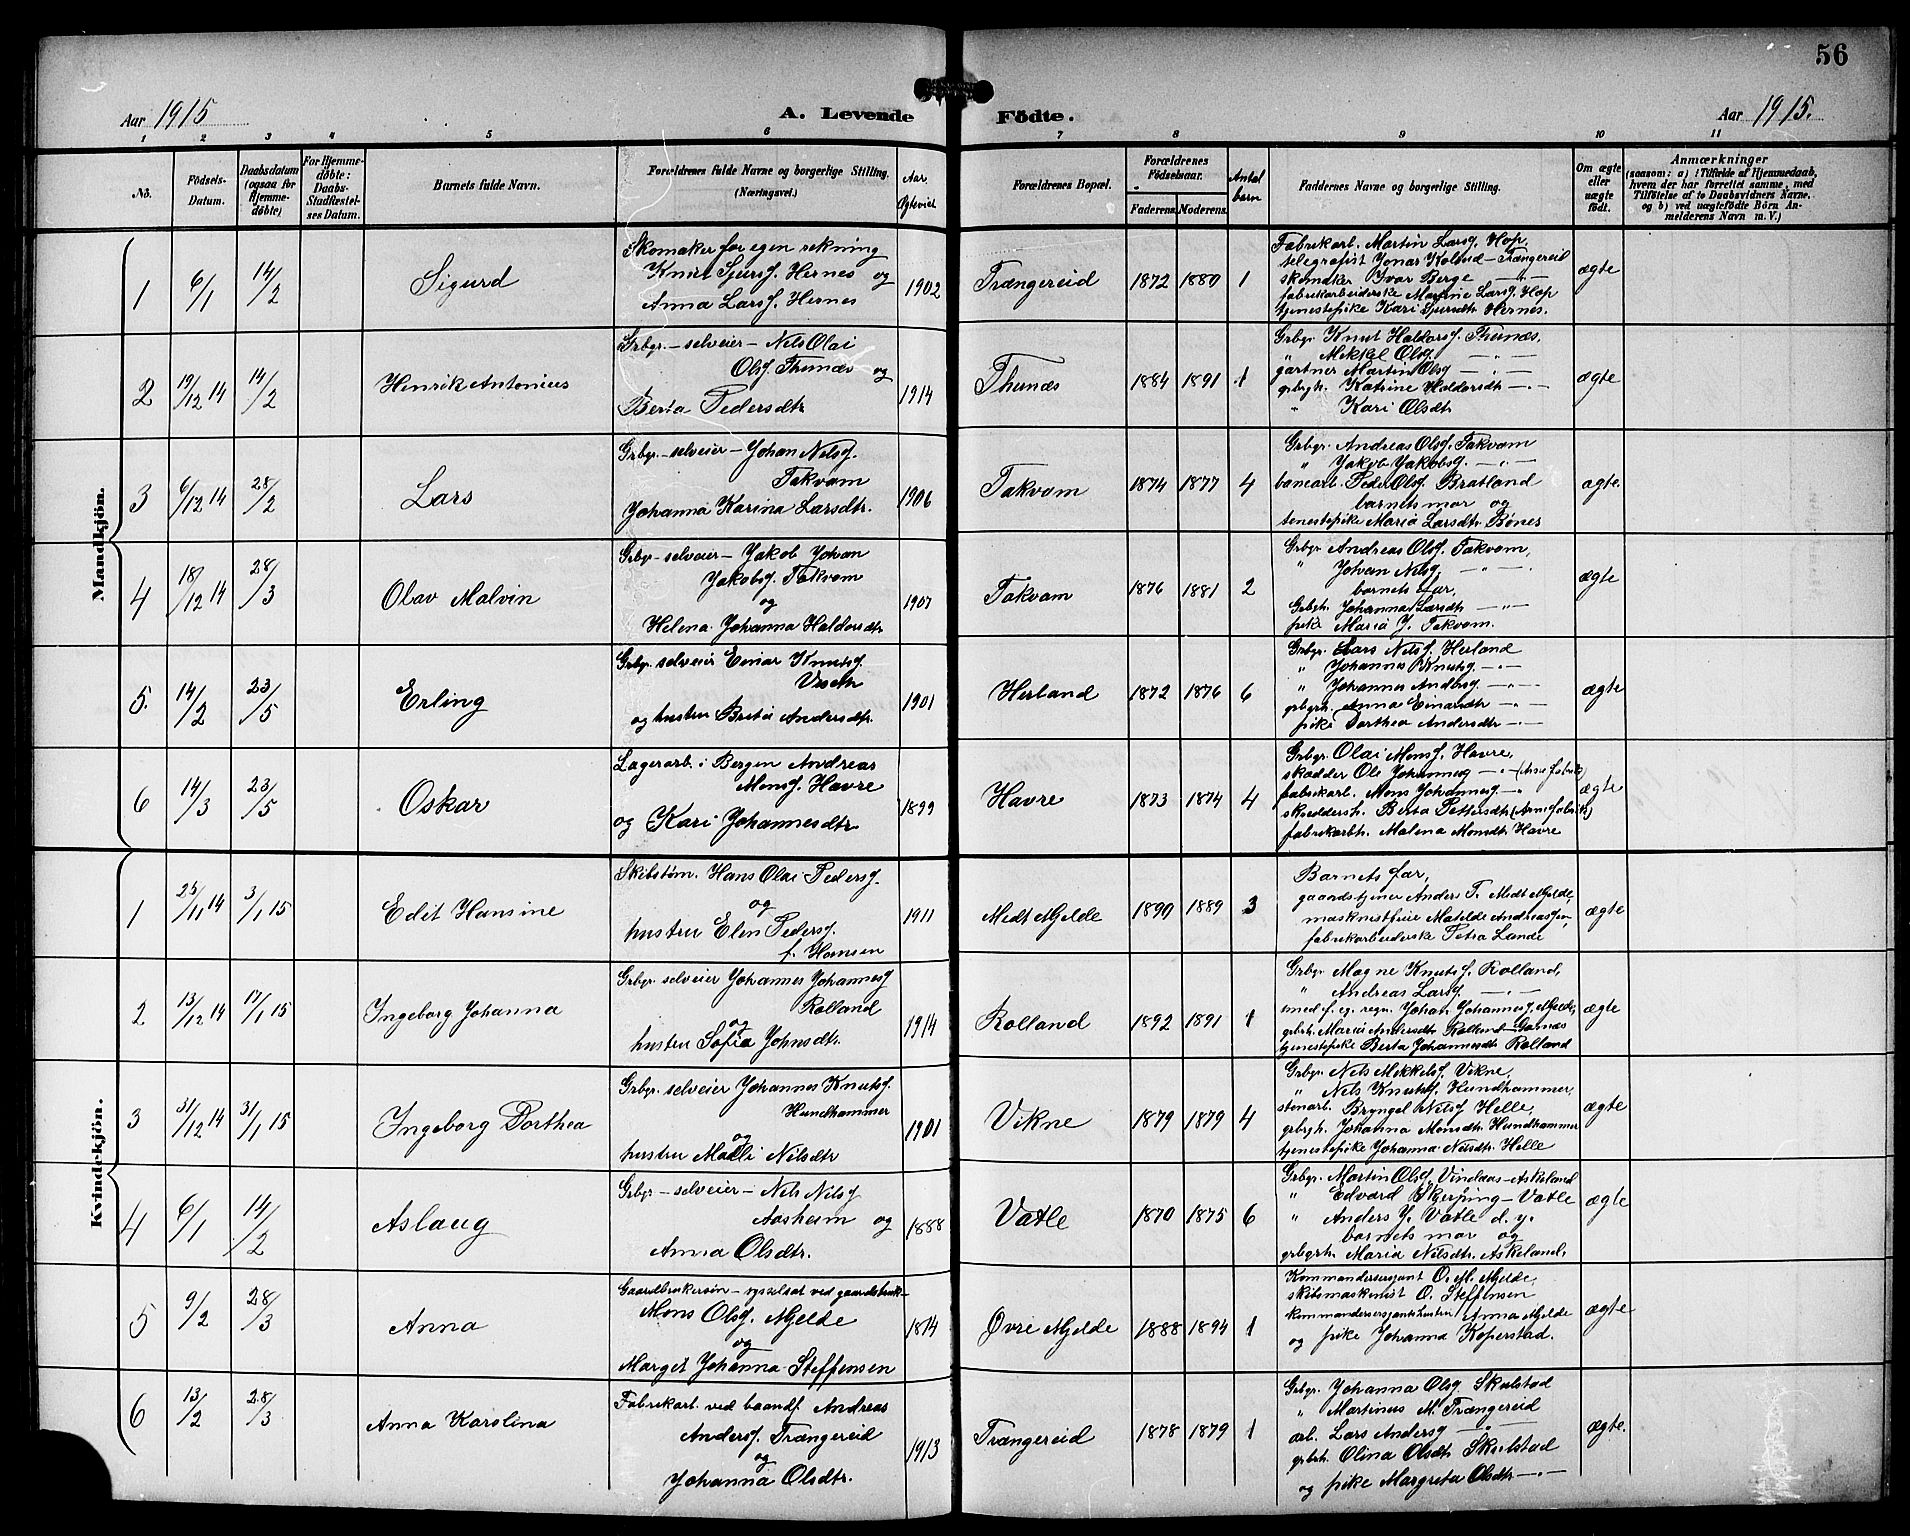 56
Aar 1915
A. Levende
Födte.
Aar 1915.
1 2 3 4 5 6 7 8 9 10 11
No.
Födsels-
Datum.
Daabsdatum
(ogsaa for
Hjemme-
döbte)
For Hjemme-
döbte:
Daabs-
Stadfæstel-
ses Datum.
Barnets fulde Navn.
Forældrenes fulde Navne og borgerlige Stilling.
(Næringsvei.)
Aar
Egteviet
Forældrenes Bopæl.
Forældrenes
Födselsaar.
Faderens. Moderens.
Antal
barn
Faddernes Navne og borgerlige Stilling.
Om ægte
eller
uægte
født.
Anmærkninger
(saasom: a) i Tilfælde af Hjemmedaab,
hvem der har forrettet samme, med
Tilföielse af to Daabsvidners Navne,
og b) ved uægtefödte Börn An-
melderens Navn m. V.)
Mandkjön.
1 6/1 14/2 Sigurd
Skomaker for egen rekning
Knut Sjursf. Hernes og
Anna Larsf. Hernes
1902 Trængereid 1872 1880 1
Fabrikarb. Martin Larsf. Hop,
telegrafist Jonas Koland - Trængereid
skomaker Ivar Berge — " —
fabrikarbeiderske Martine Larsf. Hop
tjenestepike Kari Sjursdtr Hernes.
ægte
2 19/12 14 14/2 Henrik Antonius
Grbgr. - selveier - Nils Olai
Olsf. Thunæs og
Berta Pedersdtr
1914 Thunæs 1884 1891 1
Grbgr. Knut Haldorsf. Thunæs,
" Mikkel Olsf. — " —
gartner Martin Olsf — " —
grbgrh. Katrine Haldorsdtr — " —
" Kari Olsdtr
ægte
3 6/12 14 28/2 Lars
Grbgr. - selveier - Johan Nilsf.
Takvam
Johanna Karina Larsdtr.
1906 Takvam 1874 1877 4
Grbgr. Andreas Olsf. Takvam
" Jakob Jakobsf. — " —
banearb. Peder Olsf. Bratland
barnets mor og
tenestepike Maria Larsdtr Bønes
ægte.
4 18/12 14 28/3 Olav Malvin
Grbgr - selveier - Jakob Johan
Jakobsf. Takvam
og
Helena Johanna Haldorsdtr
1907 Takvam 1876 1881 2
Grbgr Andreas Olsf. Takvam,
" Johan Nilsf. — " —
barnets far,
Grbgrh. Johanna Larsdtr — " —
pike Maria J. Takvam.
ægte
5. 14/2 23/5 Erling
Grbgr. selveier Einar Knutsf.
og hustru Brita Andersdtr.
1901 Herland 1872 1876 6
Grbgr. Lars Nilsf. Herland
" Johannes Knutsf. — " —
" Johannes Andersf. — " —
grbgrh. Anna Einarsdtr — " —
pike Dorthea Andersdtr — " —
ægte
6 14/3 23/5 Oskar
Lagerarb. i Bergen Andreas
Monsf. Havre
og Kari Johannesdtr
1899 Havre 1873 1874 4
Grbgr. Olai Monsf. Havre,
skrædder Ole Johannesf — " — (Arne fabrik)
fabrikarb. Mons Johannesf — "
skrædderh. Berta Pettersdtr (Arne fabrik)
fabrikarbh. Malena Monsdtr Havre
ægte
Kvindekjön.
1 25/11 14 3/1 15 Edit Hansine
Skibstøm. Hans Olai Pedersf.
og
hustru Elen Pedersf.
f. Hansen
1911 Midt Mjelde 1890 1889 3
Barnets far,
gaardstjener Anders T. Midt Mjelde,
maskinistfrue Matilde Andreassen,
fabrikarbeiderske Petra Lande
ægte
2 13/12 14 17/1 15 Ingeborg Johanna
Grbgr. selveier Johannes Johannesf
Rolland
og
hustru Sofia Johnsdtr.
1914 Rolland 1892 1891 1
Grbgr. Magne Knutsf. Rolland,
" Andreas Larsf. — " —
smed f. eg. regn. Johan Johannesf. Mjelde,
grbrh. Maria Andersdtr Rolland - Garnæs
tjenestepike Berta Johannesdtr Rolland
ægte
3 31/12 14 31/1 15 Ingeborg Dorthea
Grbgr. selveier Johannes Knutsf.
Hundhammer
og
hustru Malli Nilsdtr
1901 Vikne 1879 1879 4
Grbgr. Nils Mikkelsf. Vikne,
" Nils Knutsf. Hundhammer,
stenarb. Bryngel Nilsf Helle,
grbrgh. Johanna Monsdtr Hundhammer
tjenestepike Johanna Nilsdtr Helle
ægte
4 6/1 14/2 Aslaug
Grbgr - selveier - Nils Nilsf
Aasheim og
Anna Olsdtr.
1888 Vatle 1870 1875 6
Grbgr. Martin Olsf. Vindaas - Askeland
" Edvard Skjerping - Vatle
" Anders J. Vatle d. y.
barnets mor og
grbgrh. Maria Nilsdtr. Askeland.
ægte
5 9/2 28/3 Anna
Gaardbrukersøn - sysselsat ved gaardsbruk -
Mons Olsf. Mjelde
og
Marget Johanna Steffensen
1814 Øvre Mjelde 1888 1894 1
Kommandersergeant O. M. Mjelde,
skibsmaskinist O. Steffensen
kommandersergeants hustru Anna Mjelde
og pike Johanna Koperstad.
ægte
6 13/2 28/3 Anna Karolina
Fabrikarb. ved baandf. Andreas
Andersf. Trængereid
og
Johanna Olsdtr.
1913 Trængereid 1878 1879 1
Grbgr. Johanna Olsf. Skulstad
" Martinus M. Trængereid
arb. Lars Andersf — " —
grbrh. Olina Olsdtr Skulstad
og pike Margreta Olsdtr — " —
ægte.